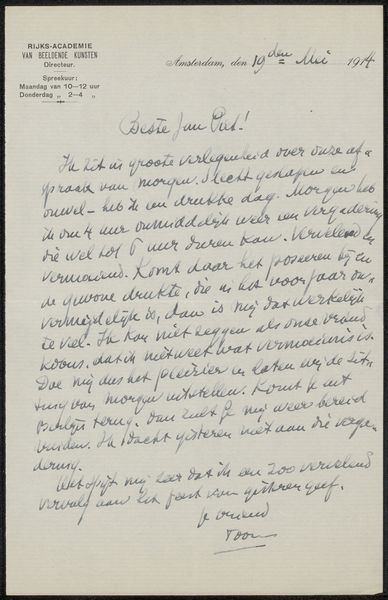 RIJKS-ACADEMIE
VAN BEELDENDE KUNSTEN
Directeur.
Spreekuur:
Maandag van 10—12 uur
Donderdag „ 2—4 „
Amsterdam, den 19den Mei 1914
Beste Jan Piet!
Ik zit in groote verlegenheid over onze af-
spraak van morgen. Slecht geslapen en
onwel – heb ik een drukke dag. Morgen heb
ik om 4 uur onmiddelijk weer een vergadering
die wel tot 6 uur duren kan. Vervelend en
vermoeiend. Komt daar het poseeren bij en
de gewone drukte, die in het voorjaar on-
vermijdelijk is, dan is mij dat werkelijk
te veel. Ik kan niet zeggen als onze vriend
dat ik niet weet wat vermoeienis is.
Doe mij dus het pleizier en laten wij de zit-
ting van morgen uitstellen. Komt je uit
terug. Dan zult je mij weer bereid
vinden. Ik dacht gisteren niet aan die verga-
dering.
Het spijt mij zeer dat ik een zoo vervelend
vervolg aan het feest van gisteren geef.
Je vriend
Toon